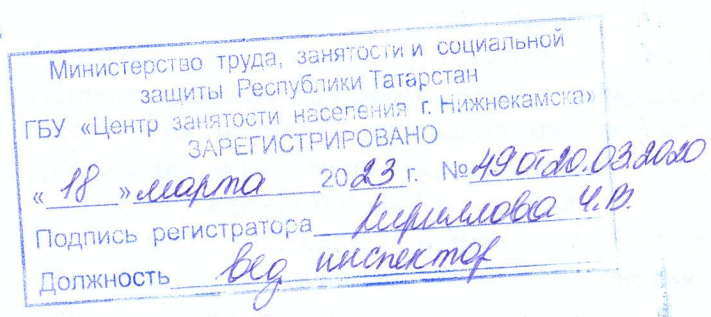 Министерство труда, занятости и социальной
защиты Республики Татарстан
ГБУ «Центр занятости населения г. Нижнекамска»
ЗАРЕГИСТРИРОВАНО
«18» марта 2023 г. № 49 от 20.03.2020
Подпись регистратора Кириллова Ч.В.
Должность вед инспектор